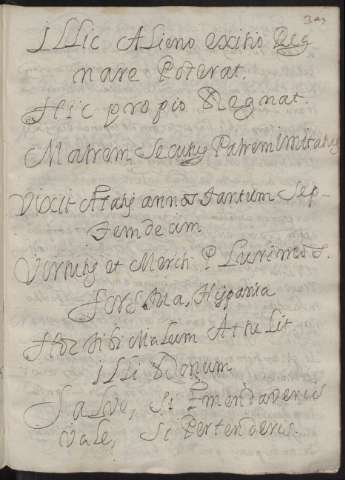 Illic Alieno exitio Reg
nare Poterat.
Hic propio Regnat.
Matrem Secutus Patrem imitatus
Vixit Ætatis annos tantum Sep-
temdecim
Virtutis et Meriti Plurimos.
Fors tua, Hispania
Hoc tibi Malum Attulit
Illi Donum
Salve, Si Emendaveris
Vale, Si Pertenderis.